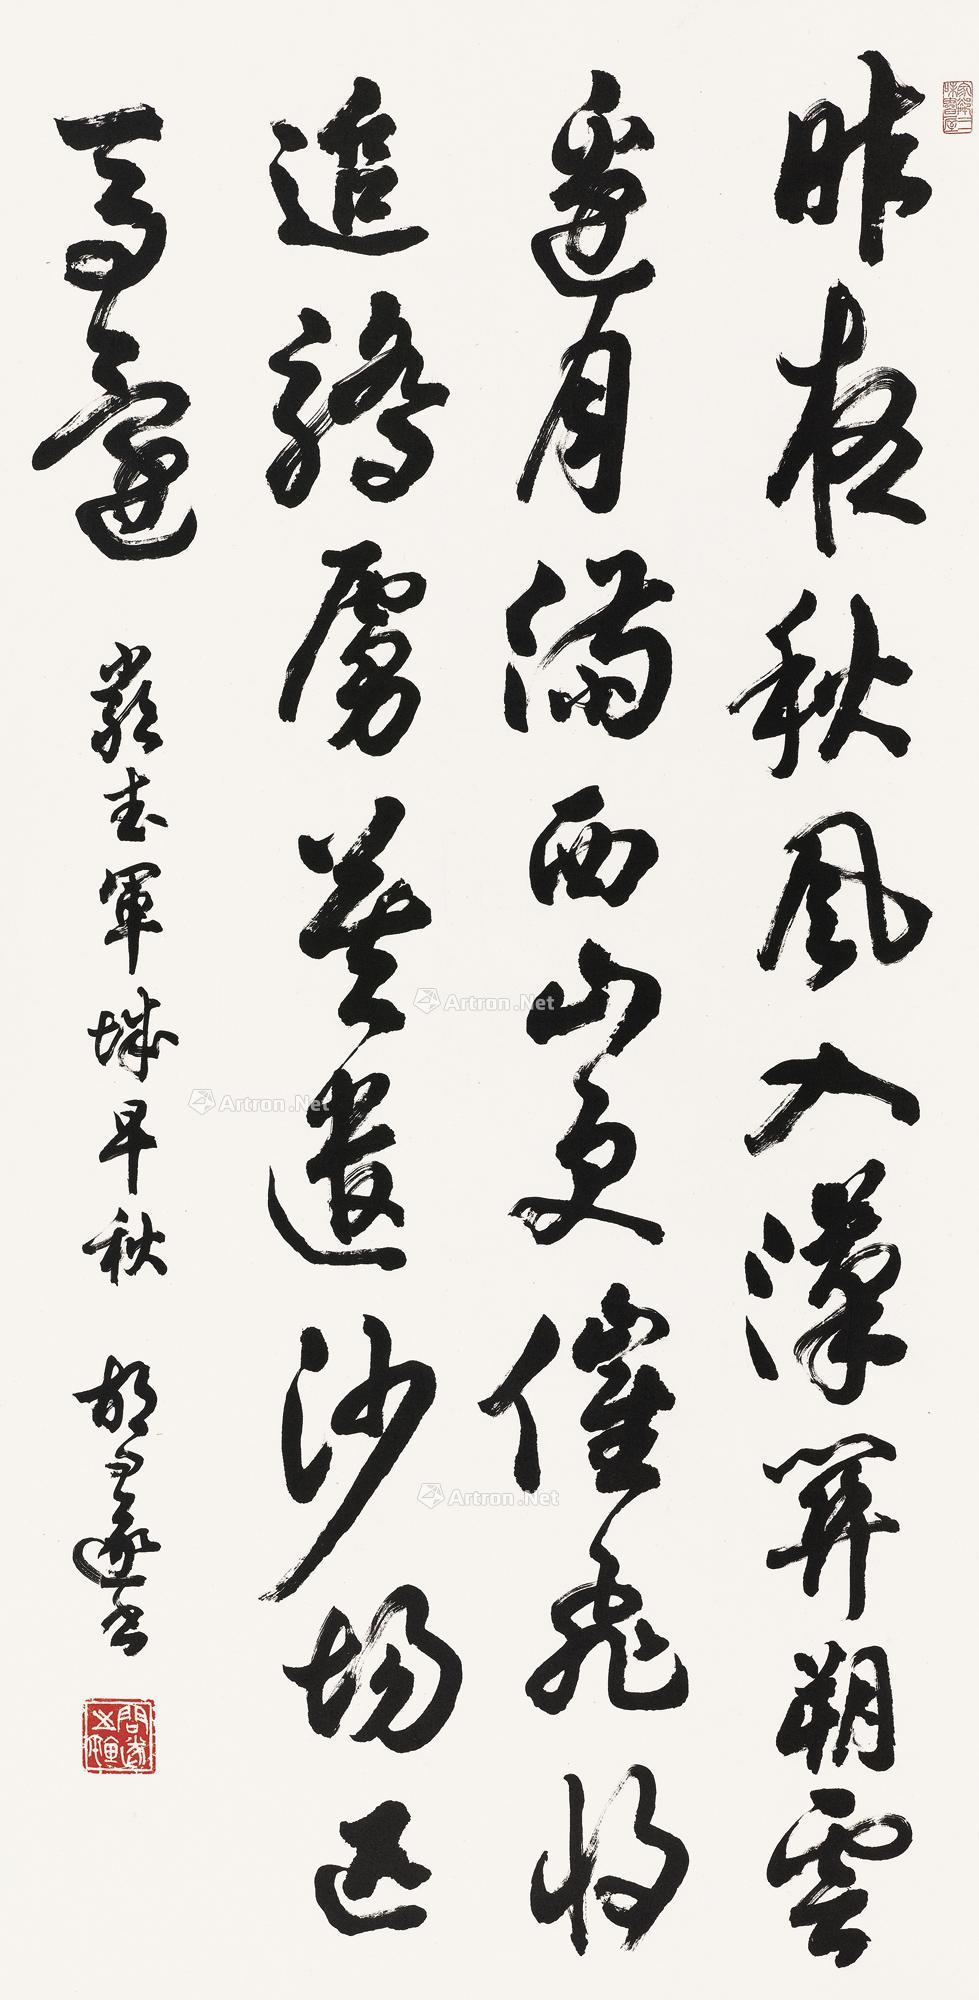 昨夜秋風入漢關朔雲
邊月滿西山更催飛將
追驕虜莫遣沙場匹
馬還
嚴武軍城早秋 胡問遂書
Artron.Net
Artron.Net
Artron.Net